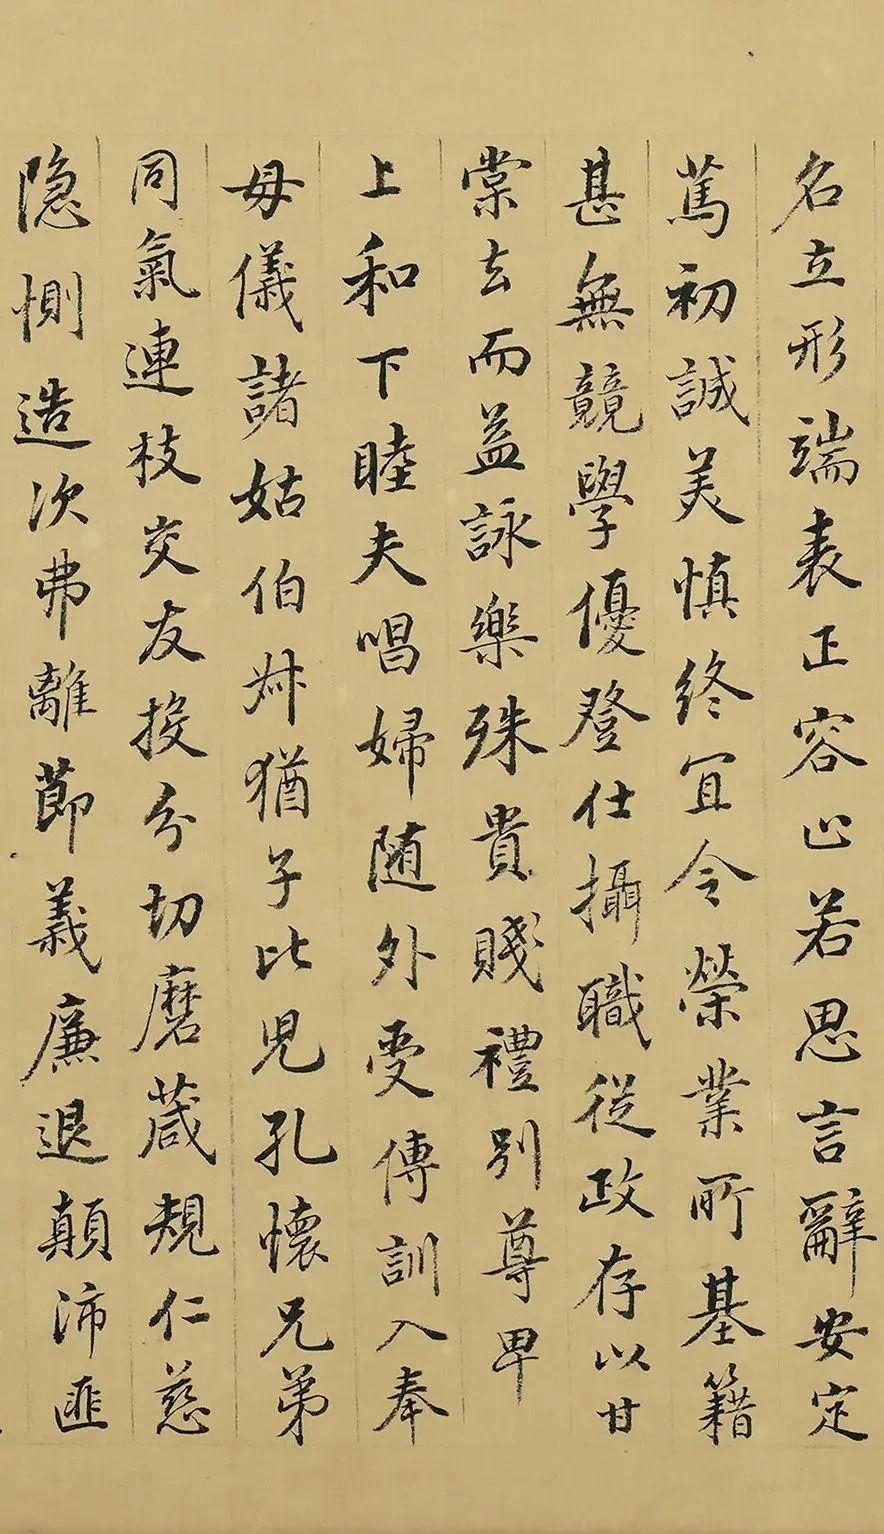 名立形端表正容止若思言辭安定
篤初誠美慎終宜令榮業所基籍
甚無競學優登仕攝職從政存以甘
棠去而益詠樂殊貴賤禮別尊卑
上和下睦夫唱婦随外受傅訓入奉
母儀諸姑伯叔猶子比兒孔懷兄弟
同氣連枝交友投分切磨箴規仁慈
隐惻造次弗離節義廉退顛沛匪